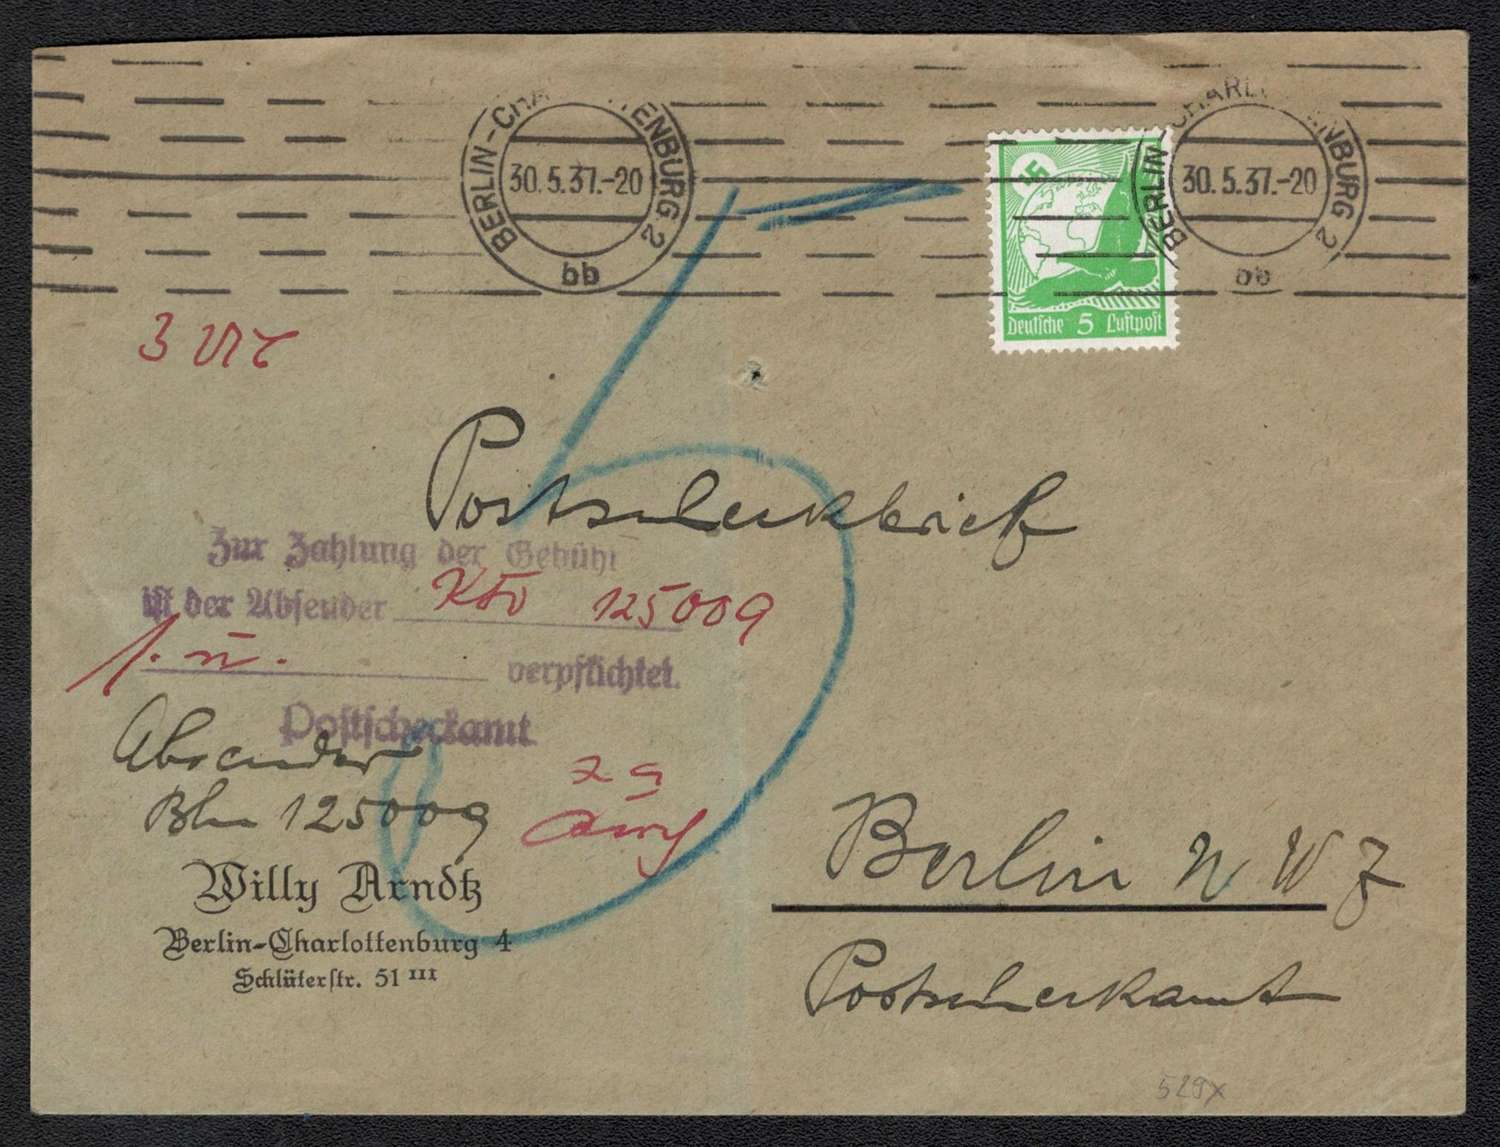 BERLIN-CHARLOTTENBURG 2
30.5.37.-20
bb
BERLIN-CHARLOTTENBURG 2
30.5.37.-20
bb
Deutsche 5 Luftpost
5
Postscheckbrief
Zur Zahlung der Gebühr
ist der Absender Kto 125009
verpflichtet.
Postscheckamt
Absender
Bln 125009
Willy Arndtz
Berlin-Charlottenburg 4
Schlüterstr. 51 III
Berlin NW 7
Postscheckamt
529x